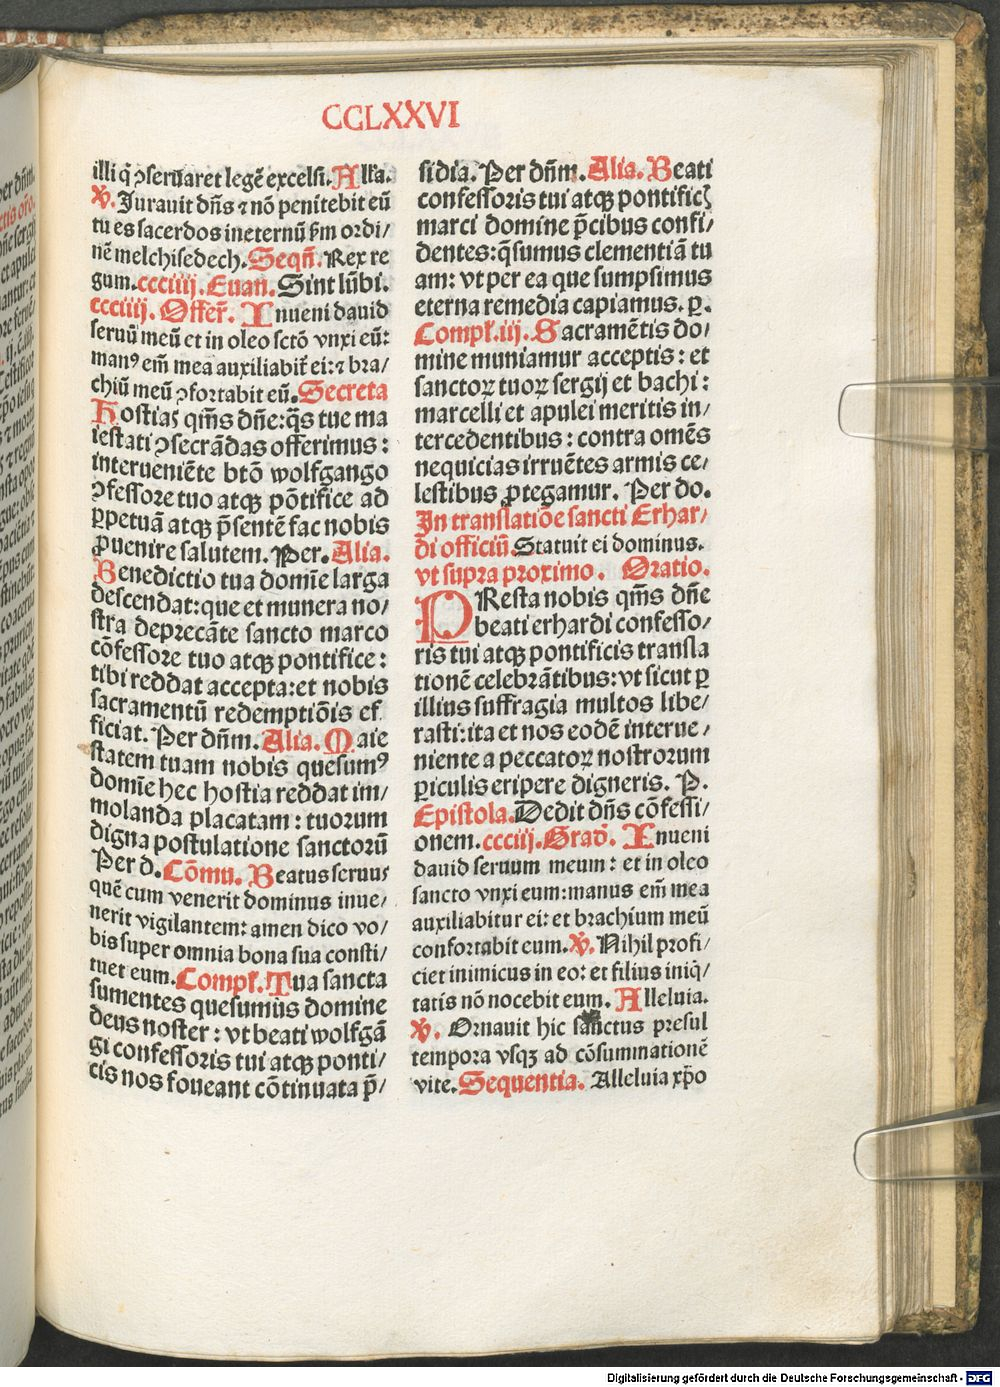 CCLXXVI
illi q̇ ꝯseruaret legē excelsi. Allꝛa.
℣. Jurauit dn̄s ⁊ nō penitebit eū
tu es sacerdos ineternū ẜm ordi/
nē melchisedech. Seqn̄. Rex re
gum. ccciiij. Euan. Sint lūbi.
ccciiij. Offer̄. Inueni dauid
seruū meū et in oleo sctō vnxi eū:
manꝰ em̄ mea auxiliabit̄ ei: ⁊ bra/
chiū meū ꝯfortabit eū. Secreta
Hostias qm̄s dn̄e: q̄s tue ma
iestati ꝯsecrādas offerimus:
interueniēte btō wolfgango
ꝯfessore tuo atqꝫ pōtifice ad
ꝑpetuā atqꝫ p̄sentē fac nobis
ꝓuenire salutem. Per. Alia.
Benedictio tua domīe larga
descendat: que et munera no/
stra deprecāte sancto marco
cōfessore tuo atqꝫ pontifice:
tibi reddat accepta: et nobis
sacramentū redemptiōis ef
ficiat. Per dn̄m. Alia. Maie
statem tuam nobis quesumꝰ
domīe hec hostia reddat im/
molanda placatam: tuorum
digna postulatione sanctorū
Per d. Cōmu. Beatus seruus
quē cum venerit dominus inue/
nerit vigilantem: amen dico vo/
bis super omnia bona sua consti/
tuet eum. Compł. Tua sancta
sumentes quesumus domine
deus noster: vt beati wolfgā
gi confessoris tui atqꝫ ponti/
cis nos foueant cōtinuata p̄/
sidia. Per dn̄m. Alia. Beati
confessoris tui atqꝫ pontificꝭ
marci domine p̄cibus confi/
dentes: q̄sumus clementiā tu
am: vt per ea que sumpsimus
eterna remedia capiamus. p.
Compł. iij. Sacramētis do/
mine muniamur acceptis: et
sanctoꝝ tuoꝝ sergij et bachi:
marcelli et apulei meritis in/
tercedentibus: contra omēs
nequicias irruētes armis ce/
lestibus ꝓtegamur. Per do.
In translatiōe sancti Erhar/
di officiū. Statuit ei dominus.
vt supra proximo. Oratio.
PResta nobis qm̄s dn̄e
beati erhardi confesso/
ris tui atqꝫ pontificis transla
tionē celebrātibus: vt sicut ꝑ
illius suffragia multos libe/
rasti: ita et nos eodē interue/
niente a peccatoꝝ nostrorum
ꝑiculis eripere digneris. P.
Epistola. Dedit dn̄s cōfessi/
onem. ccciij. Grad̄. Inueni
dauid seruum meum: et in oleo
sancto vnxi eum: manus em̄ mea
auxiliabitur ei: et brachium meū
confortabit eum. ℣. Nihil profi/
ciet inimicus in eo: et filius iniq̇/
tatis nō nocebit eum. Alleluia.
℣. Ornauit hic sanctus presul
tempora vsqꝫ ad cōsummationē
vite. Sequentia. Alleluia xp̄o
Digitalisierung gefördert durch die Deutsche Forschungsgemeinschaft - DFG